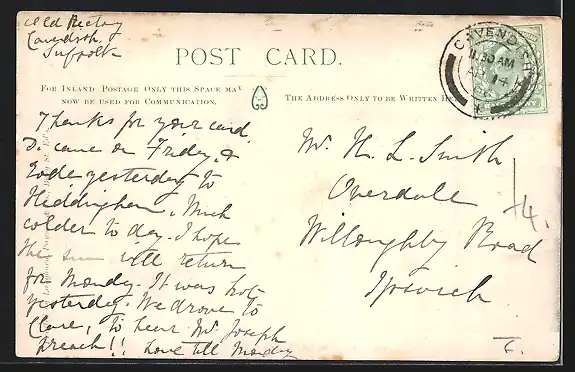 Old Rectory
Cavendish,
Suffolk
POST CARD.
FOR INLAND POSTAGE ONLY THIS SPACE MAY
NOW BE USED FOR COMMUNICATION.
THE ADDRESS ONLY TO BE WRITTEN
CAVENDISH
11.30 AM
14
Thanks for your card.
D. came on Friday, &
rode yesterday to
Heddingham. Much
colder to day. I hope
the sun will return
for Monday. It was hot
yesterday. We drove to
Clare, to hear Mr. Joseph
preach!! Love till Monday
Mr. H. L. Smith
Overdale
Willoughby Road
Ipswich
14